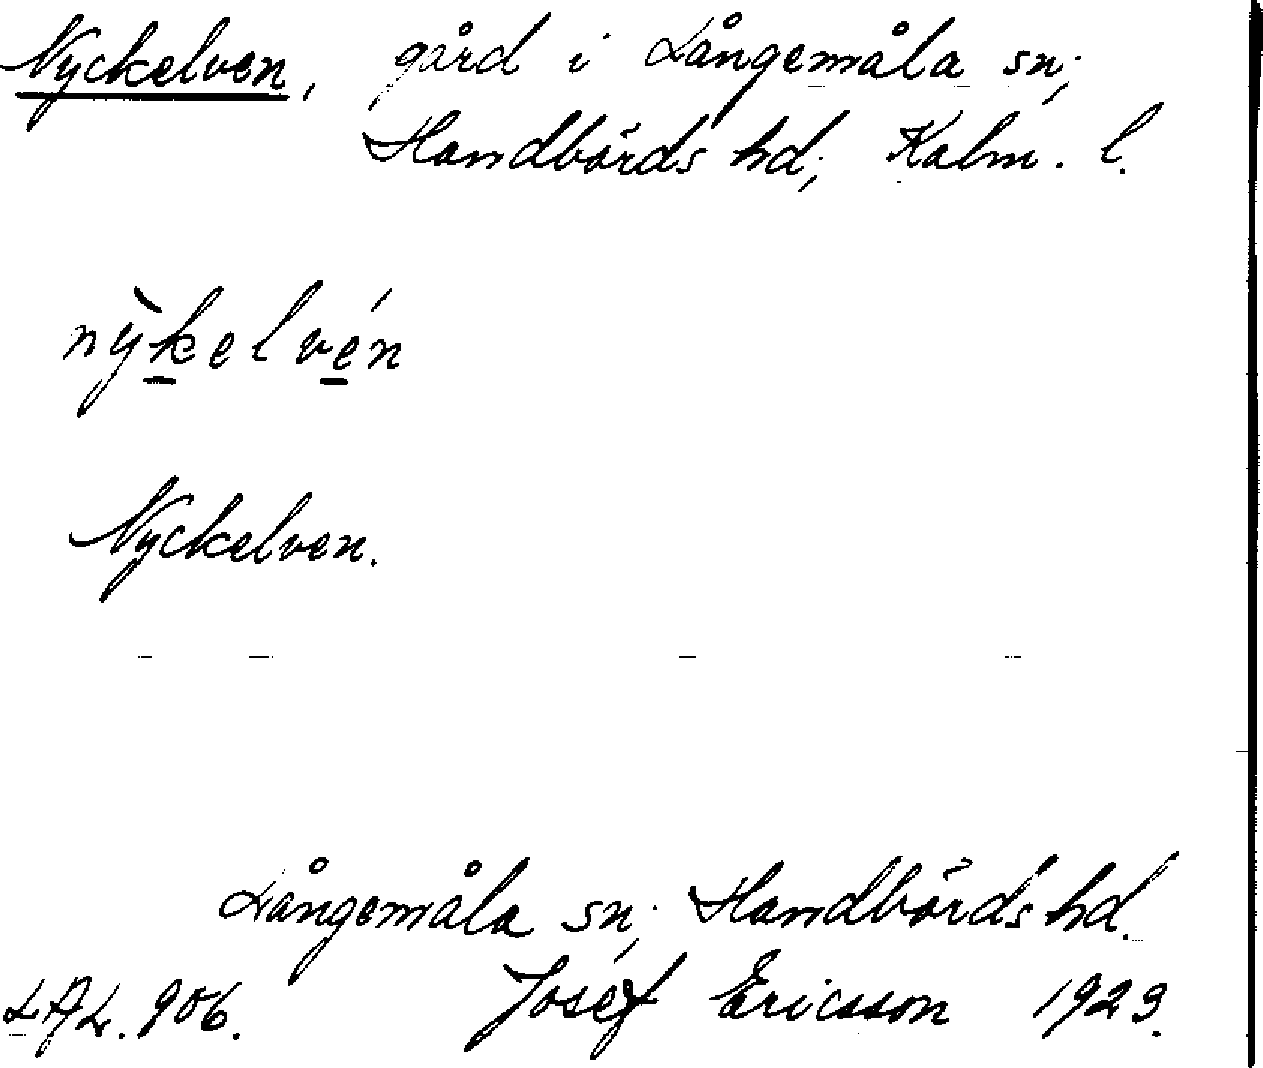 Nyckelven, gård i Långemåla sn;
Handbörds hd; Kalm. l.
nỳkelvén
Nyckelven.
Långemåla sn; Handbörds hd.
LAL. 906. Josef Ericsson 1923.